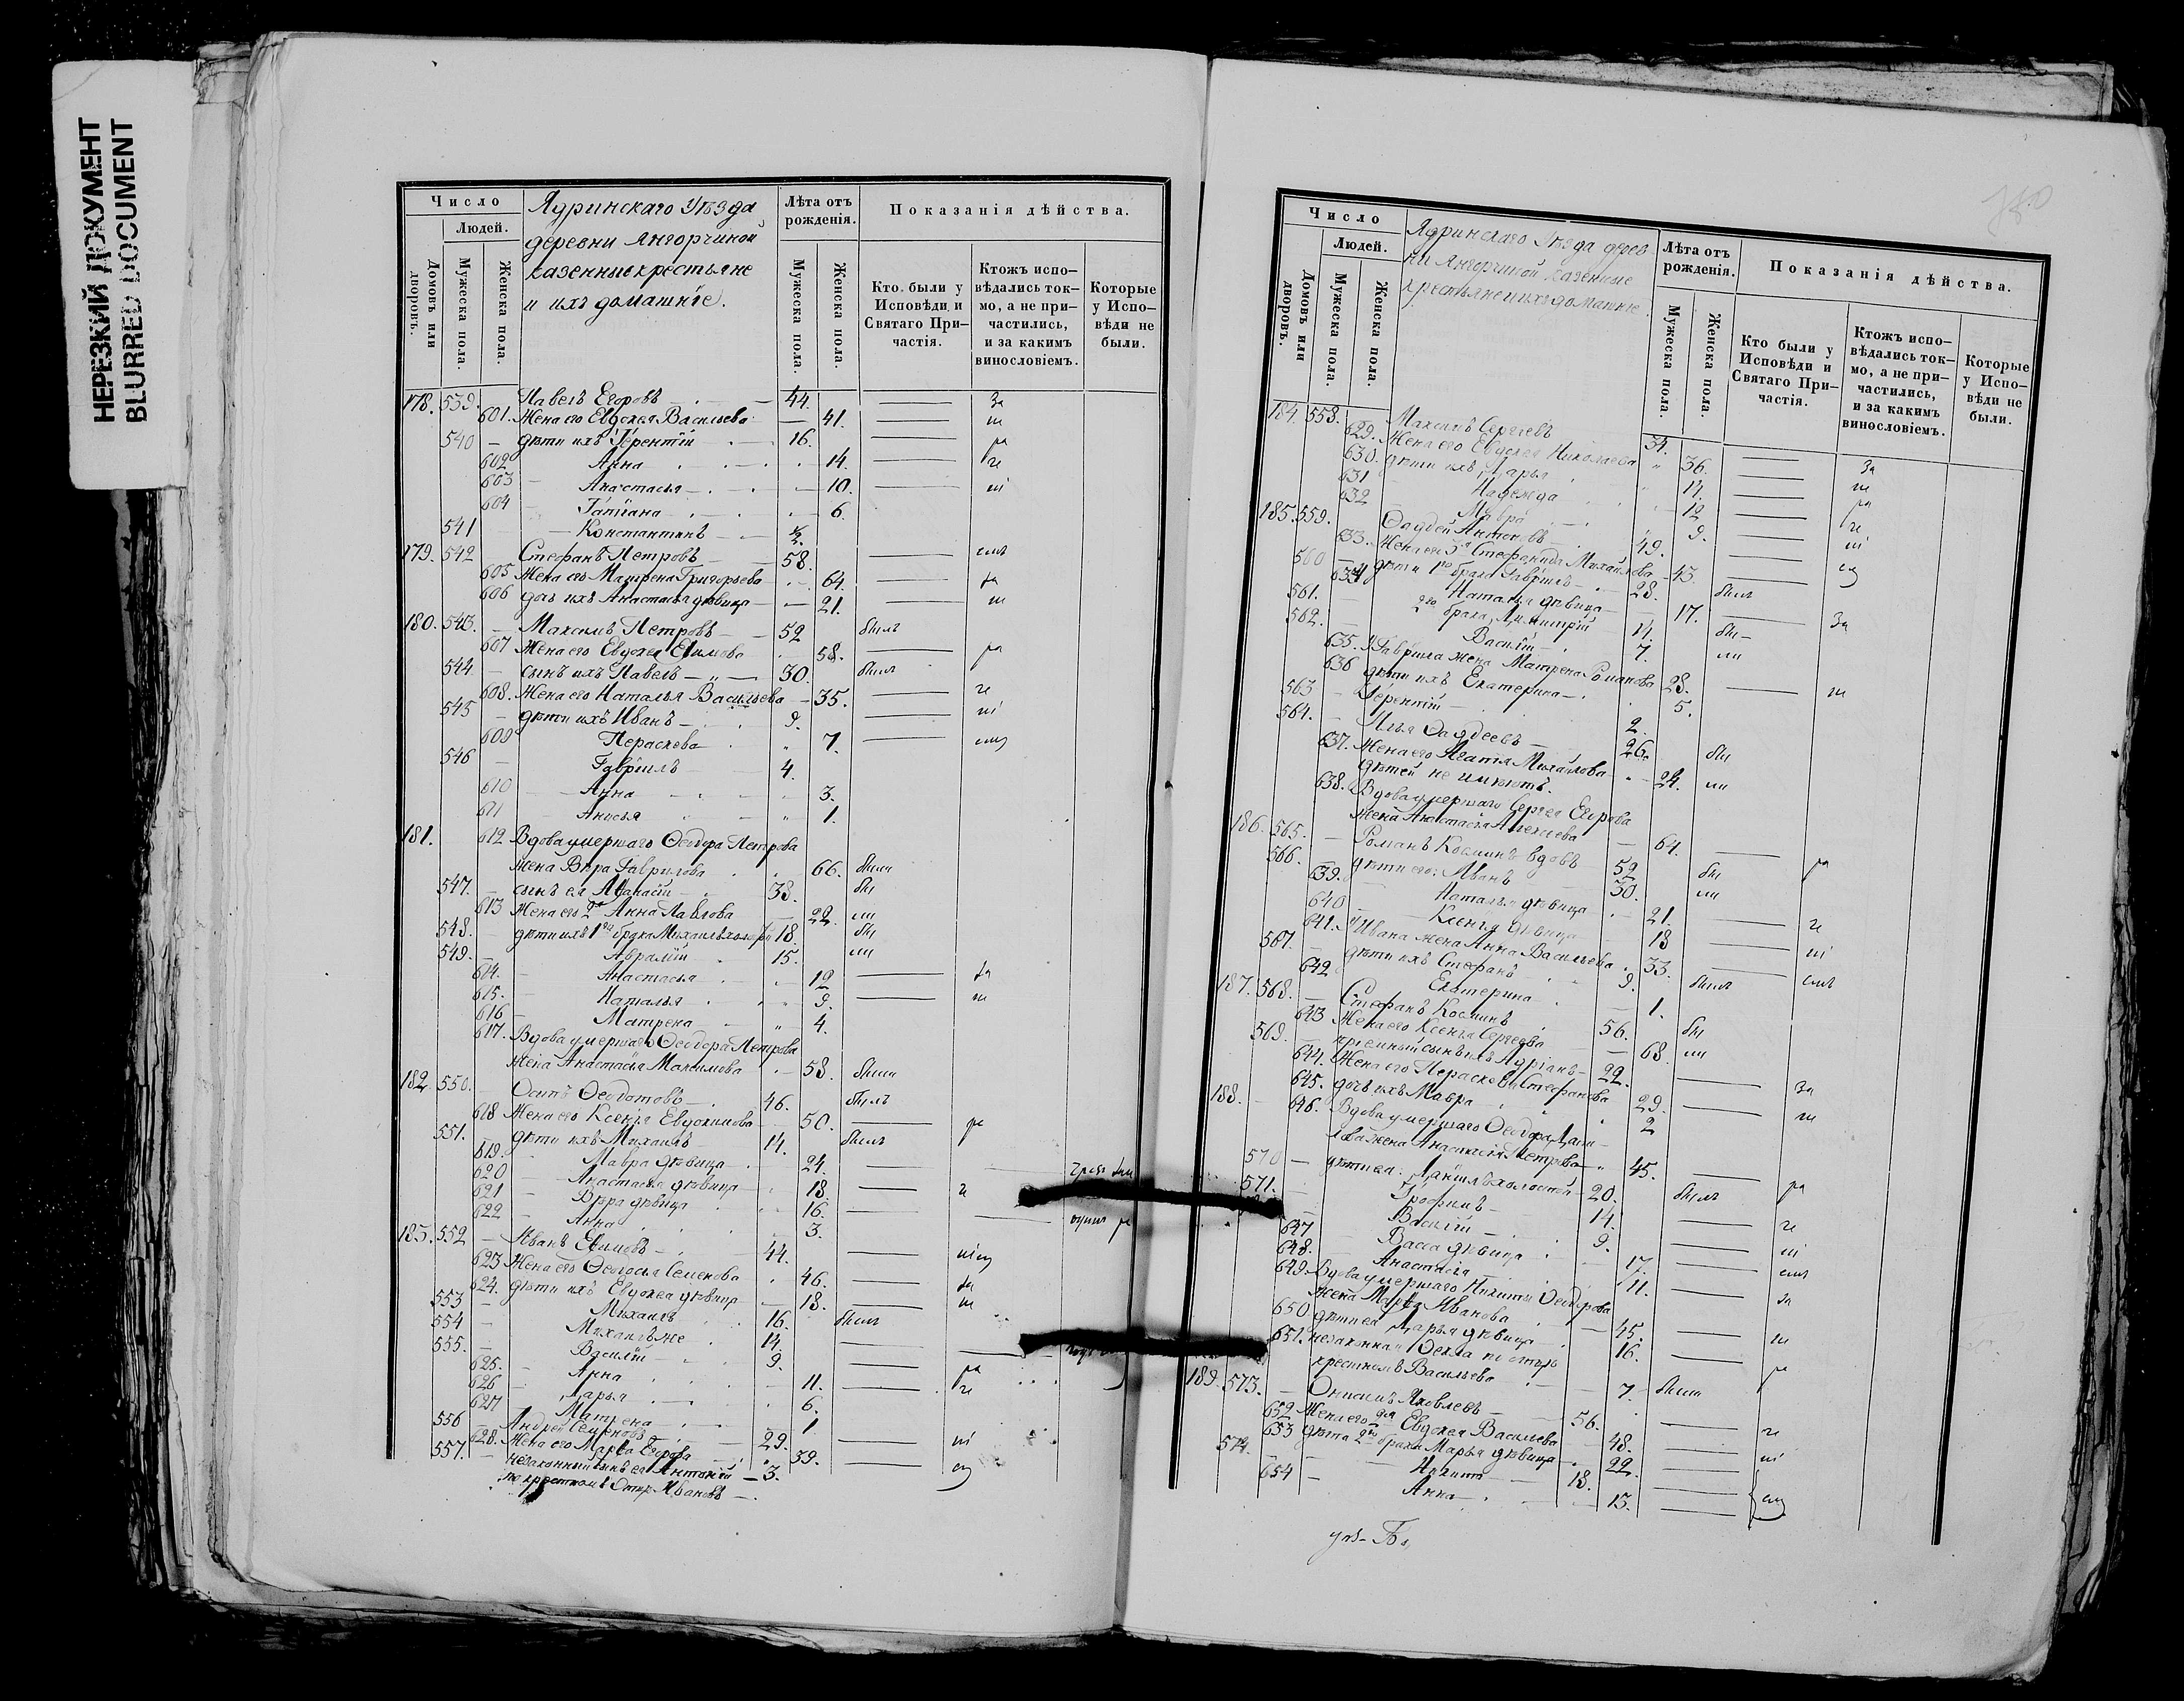 НЕРЕЗКИЙ ДОКУМЕНТ
BLURRED DOCUMENT
Число
Людей.
Домовъ или дворовъ.
Мужеска пола.
Женска пола.
Ядринскаго Уѣзда
деревни Янгорчиной
казенные крестьяне
и ихъ домашніе.
Лѣта отъ рожденія.
Мужеска пола.
Женска пола.
Показанія дѣйства.
Кто были у Исповѣди и Святаго При-частія.
Ктожъ испо-вѣдались ток-мо, а не при-частились, и за какимъ винословіемъ.
Которые у Испо-вѣди не были.
178. 539. Павелъ Егоровъ 44. За
601. Жена его Евдокея Васильева 41.
540 дѣти ихъ Терентій 16.
602 Анна 14.
603 Анастасья 10.
604 Татіана 6.
541 Константинъ ½.
179. 542 Стефанъ Петровъ 58.
605 Жена его Матрена Григорьева 64.
606 дочь ихъ Анастасья дѣвица 21.
180. 543. Максимъ Петровъ 52 былъ
607 Жена его Евдокея Ефимова 58.
544 сынъ ихъ Павелъ 30. былъ
608. Жена его Наталья Васильева 35.
545 дѣти ихъ Иванъ 9.
609 Пераскева 7.
546 Гавріилъ 4.
610 Анна 3.
611 Анисья 1.
181. 612 Вдова умершаго Ѳеодора Петрова
жена Вѣра Гаврилова 66. была
547. сынъ ея Афанасій 38. бы
613 Жена его 2я Анна Павлова 22. ли
548. дѣти ихъ 1го брака Михаилъ холостъ 18. бы
549. Аврамій 15. ли
614. Анастасья 12
615. Наталья 9.
616 Матрена 4.
617. Вдова умершаго Ѳеодора Петрова
жена Анастасія Максимова 58. была
182 550. Осипъ Ѳеодотовъ 46. былъ
618 Жена его Ксенія Евдокимова 50.
551. дѣти ихъ Михаилъ 14. былъ
619. Мавра дѣвица 24.
620 Анастасья дѣвица 18.
621 Вѣра дѣвица 16.
622 Анна 3.
183. 552 Иванъ Ефимовъ 44.
623 Жена его Ѳеодосья Семенова 46.
624. дѣти ихъ Евдокея дѣвица 18.
553 Михаилъ 16. былъ
554 Михаилъ же 14.
555. Василій 9.
625. Анна 11.
626 Дарья 6.
627 Матрена 1
556 Андрей Семеновъ 29.
628. Жена его Марѳа Егорова 39.
557. незаконный сынъ ея Антоній 3.
по крестномъ Отцѣ Ивановъ
Число
Людей.
Домовъ или дворовъ.
Мужеска пола.
Женска пола.
Ядринскаго Уѣзда дерев
ни Янгорчиной казенные
крестьяне и ихъ домашніе.
Лѣта отъ рожденія.
Мужеска пола.
Женска пола.
Показанія дѣйства.
Кто были у Исповѣди и Святаго При-частія.
Ктожъ испо-вѣдались ток-мо, а не при-частились, и за какимъ винословіемъ.
Которые у Испо-вѣди не были.
184. 558. Максимъ Сергеевъ 34.
629. Жена его Евдокея Николаева 36. За
630. дѣти ихъ Дарья 14.
631 Надежда 12
632 Мавра 9.
185. 559. Ѳаддей Антоновъ 49.
633. Жена его 3я Стефанида Михайлова 43.
560 дѣти 1го брака Гавріилъ 28. былъ
634 Наталья дѣвица 17. За
561. 2го брака Димитрій 14. бы
562. Василій 7. ли
635. У Гавріила жена Матрена Романова 28.
636 дѣти ихъ Екатерина 5.
563 Терентій 2.
564. Илья Ѳаддеевъ 26. бы
637. Жена его Агатія Михайлова 24. ли
дѣтей не имѣютъ.
638. Вдова умершаго Сергея Егорова
жена Анастасія Алексеева 64.
186. 565. Романъ Косминъ вдовъ 52 бы
566. дѣти его: Иванъ 30. ли
639. Наталья дѣвица 21.
640 Ксенія дѣвица 18
641. У Ивана жена Анна Васильева 33.
567. дѣти ихъ Стефанъ 9. былъ
642 Екатерина 1.
187. 568. Стефанъ Косминъ 56. бы
643 Жена его Ксенія Сергеева 68. ли
569. пріемный сынъ ихъ Адріанъ 22. За
644. Жена его Пераскева Стефанова 29.
645. дочь ихъ Мавра 2
188. 646. Вдова умершаго Ѳеодора Дани-
лова жена Анастасія Петрова 45.
570 дѣти ея: Даніилъ холостъ 20. былъ
571. Трофимъ 14.
Василій 9.
647 Васса дѣвица 17.
648. Анастасія 11. За
649. Вдова умершаго Никиты Ѳеодорова
жена Марѳа Иванова 45.
650 дѣти ея Дарья дѣвица 16.
651. незаконная Ѳекла по отцѣ
крестномъ Васильева 7. была
189. 573. Онисимъ Яковлевъ 56.
652 Жена его 2я Евдокея Васильева 48.
653 дѣти 2го брака Марья дѣвица 22.
574. Никита 18.
654 Анна 13.